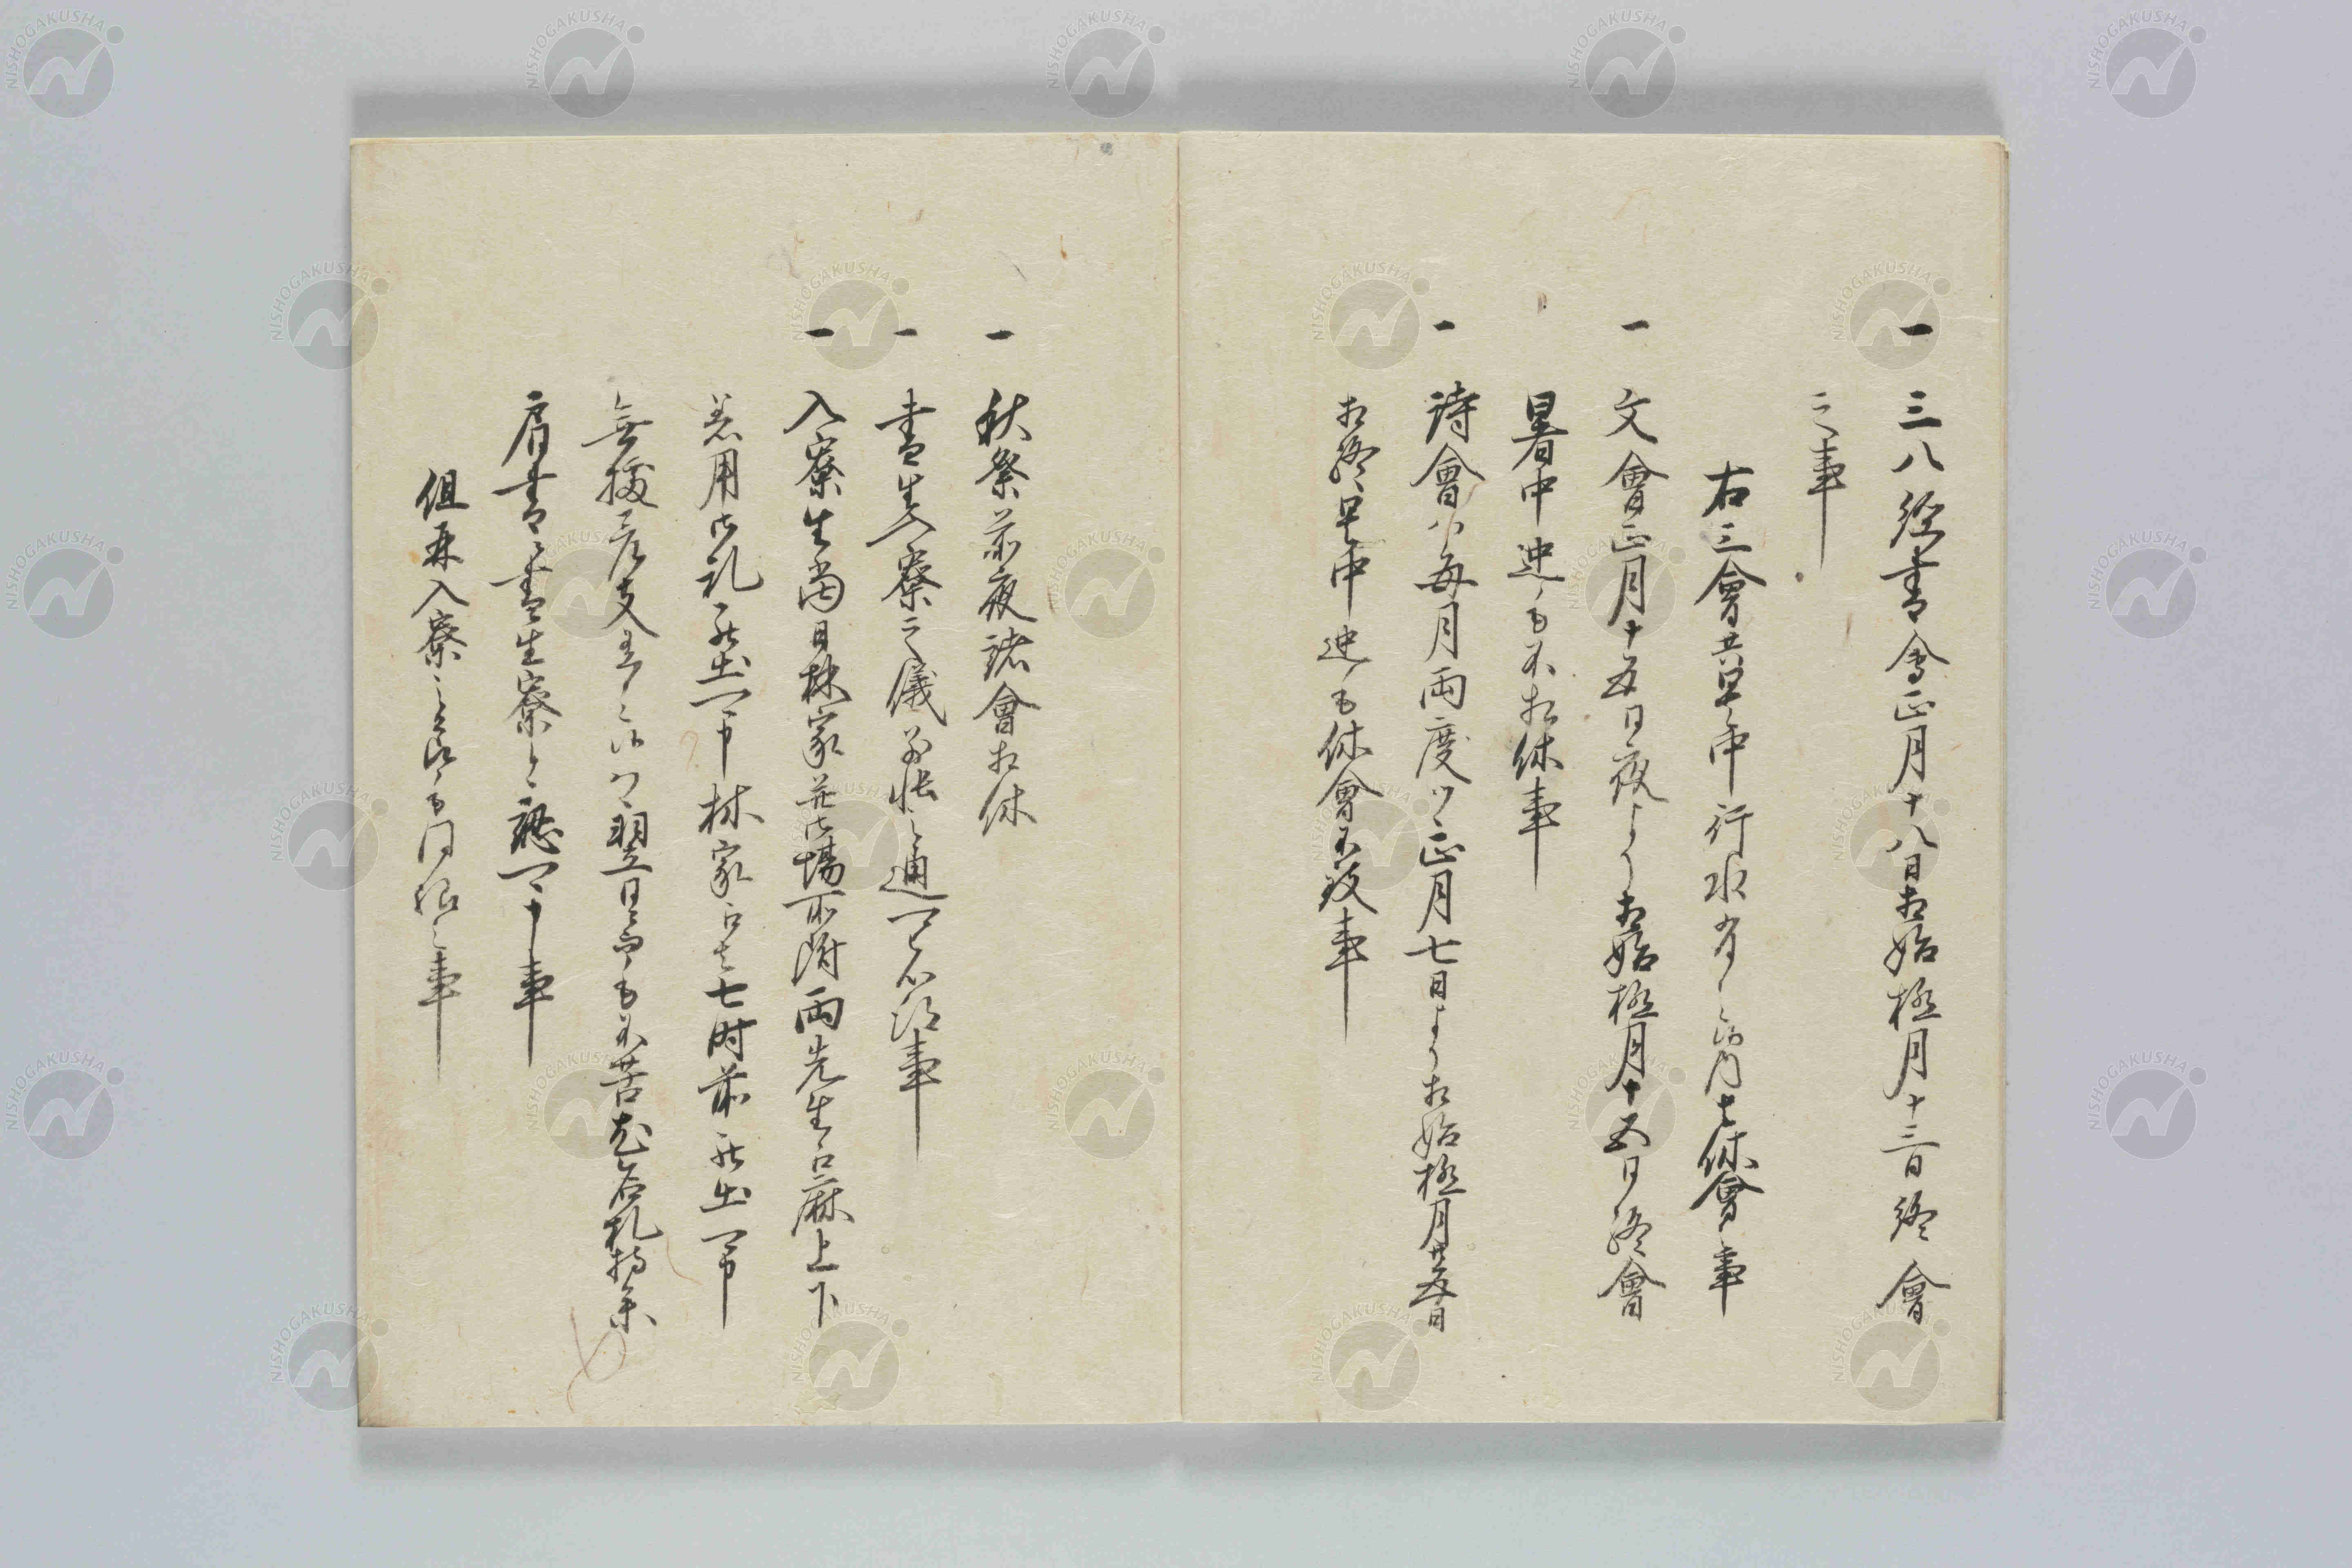 一 三八經書會正月十八日相始極月十三日終會
之事
右三會共暑中行水有之候内者休會之事
一 文會正月十五日夜より相始極月十五日終會
暑中迚も不相休事
一 詩會ハ毎月両度ツヽ正月七日より相始極月廿五日
相終暑中迚も休會不致事
一 秋祭前夜諸會相休
一 書生入寮之儀別帳之通可相心得事
一 入寮生當日林家并御場所附両先生江麻上下
着用御礼罷出可申林家江者七時前罷出可申
無據差支有之候ハヽ翌日ニ而も不苦尤名札持参
肩書ニ書生寮と認可申事
但再入寮之節も同様之事
NISHOGAKUSHA